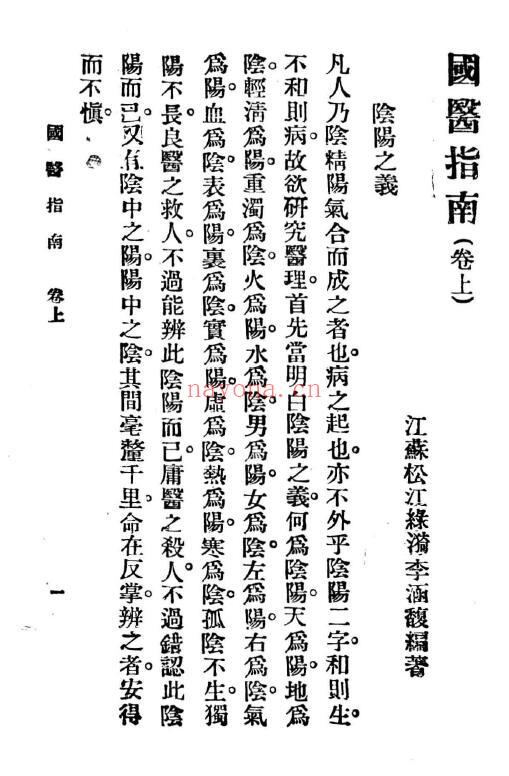 國醫指南(卷上)
江蘇松江綠漪李涵馥編著
陰陽之義
凡人乃陰精陽氣合而成之者也。病之起也。亦不外乎陰陽二字。和則生。
不和則病。故欲研究醫理。首先當明白陰陽之義。何爲陰陽。天爲陽。地爲
陰。輕清爲陽。重濁爲陰。火爲陽。水爲陰。男爲陽。女爲陰。左爲陽。右爲陰。氣
爲陽。血爲陰。表爲陽。裏爲陰。實爲陽。虛爲陰。熱爲陽。寒爲陰。孤陰不生。獨
陽不長。良醫之救人。不過能辨此陰陽而已。庸醫之殺人。不過錯認此陰
陽而已。又有陰中之陽。陽中之陰。其間毫釐千里。命在反掌。辨之者。安得
而不愼。
國醫指南 卷上
一
nayona.cn